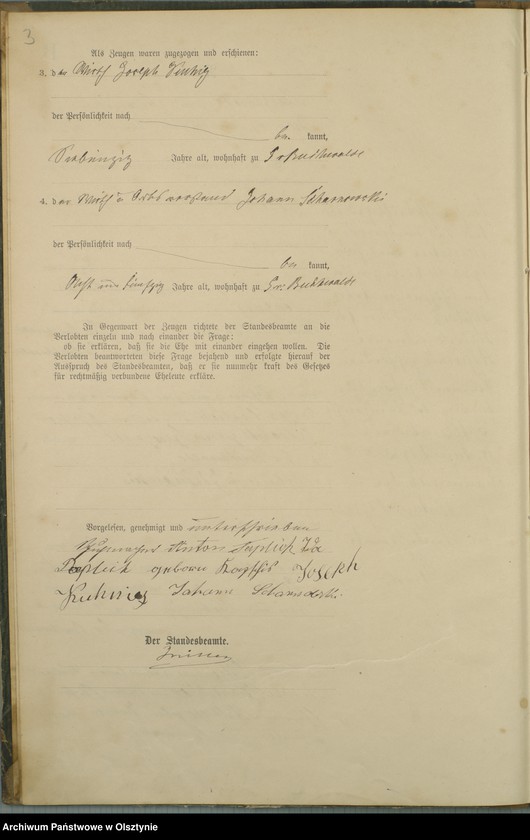 3
Als Zeugen waren zugezogen und erschienen:
3. der Wirth Joseph
der Persönlichkeit nach
be kannt,
Siebenzig Jahre alt, wohnhaft zu Gr Buchwalde
4. der Wirth u Johann Scharnowski
der Persönlichkeit nach
be kannt,
Acht und fünfzig Jahre alt, wohnhaft zu Gr: Buchwalde
In Gegenwart der Zeugen richtete der Standesbeamte an die
Verlobten einzeln und nach einander die Frage:
ob sie erklären, daß sie die Ehe mit einander eingehen wollen. Die
Verlobten beantworteten diese Frage bejahend und erfolgte hierauf der
Ausspruch des Standesbeamten, daß er sie nunmehr kraft des Gesetzes
für rechtmäßig verbundene Eheleute erkläre.
Vorgelesen, genehmigt und unterschrieben
Anton
geborne Joseph
Johann
Der Standesbeamte.
Archiwum Państwowe w Olsztynie